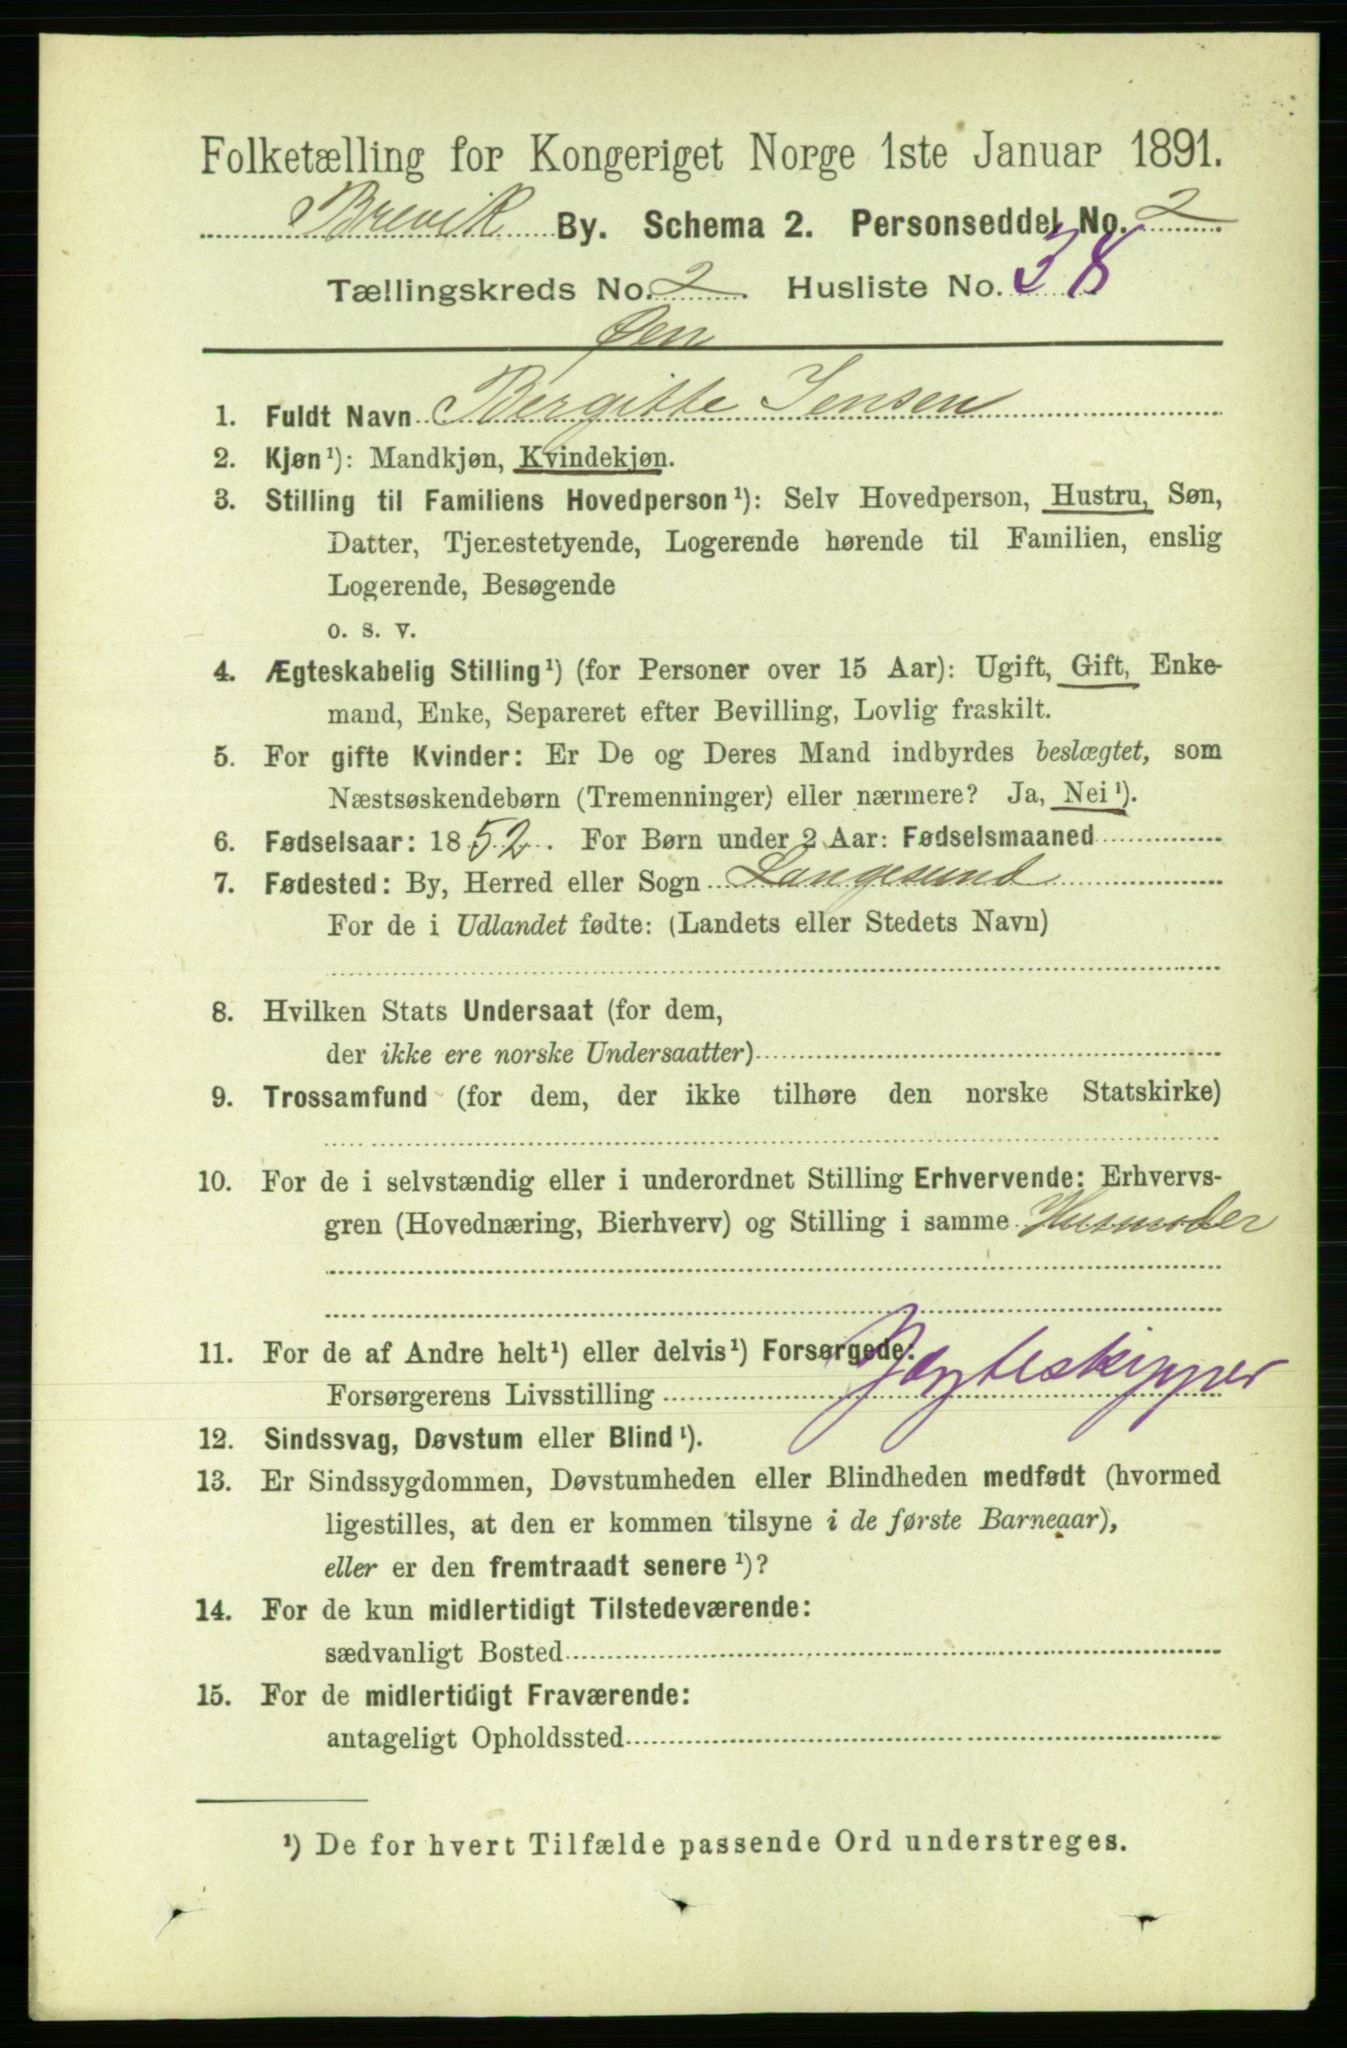 Folketælling for Kongeriget Norge 1ste Januar 1891.
Brevik By. Schema 2. Personseddel No. 2
Tællingskreds No. 2. Husliste No. 38
Øen
1. Fuldt Navn Bergitte Jensen
2. Kjøn¹): Mandkjøn, Kvindekjøn.
3. Stilling til Familiens Hovedperson¹): Selv Hovedperson, Hustru, Søn,
Datter, Tjenestetyende, Logerende hørende til Familien, enslig
Logerende, Besøgende
o. s. v.
4. Ægteskabelig Stilling¹) (for Personer over 15 Aar): Ugift, Gift, Enke-
mand, Enke, Separeret efter Bevilling, Lovlig fraskilt.
5. For gifte Kvinder: Er De og Deres Mand indbyrdes beslægtet, som
Næstsøskendebørn (Tremenninger) eller nærmere? Ja, Nei¹).
6. Fødselsaar: 1852. For Børn under 2 Aar: Fødselsmaaned
7. Fødested: By, Herred eller Sogn Langesund
For de i Udlandet fødte: (Landets eller Stedets Navn)
8. Hvilken Stats Undersaat (for dem,
der ikke ere norske Undersaatter)
9. Trossamfund (for dem, der ikke tilhøre den norske Statskirke)
10. For de i selvstændig eller i underordnet Stilling Erhvervende: Erhvervs-
gren (Hovednæring, Bierhverv) og Stilling i samme Husmoder
11. For de af Andre helt¹) eller delvis¹) Forsørgede:
Forsørgerens Livsstilling Jagteskipper
12. Sindssvag, Døvstum eller Blind¹).
13. Er Sindssygdommen, Døvstumheden eller Blindheden medfødt (hvormed
ligestilles, at den er kommen tilsyne i de første Barneaar),
eller er den fremtraadt senere¹)?
14. For de kun midlertidigt Tilstedeværende:
sædvanligt Bosted
15. For de midlertidigt Fraværende:
antageligt Opholdssted
¹) De for hvert Tilfælde passende Ord understreges.